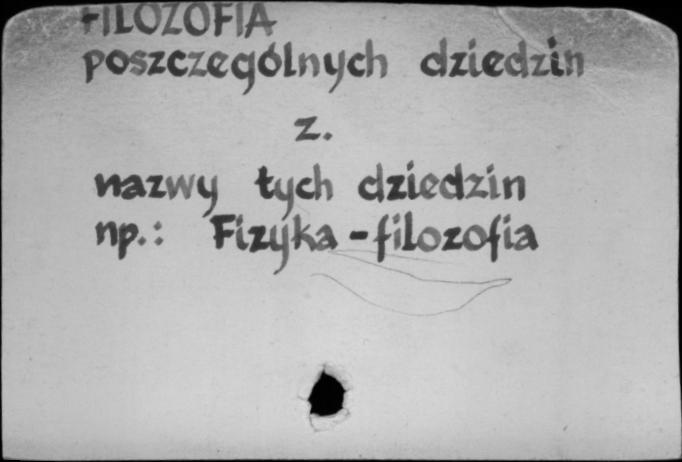 FILOZOFIA
poszczególnych dziedzin
z.
nazwy tych dziedzin
np.: Fizyka - filozofia